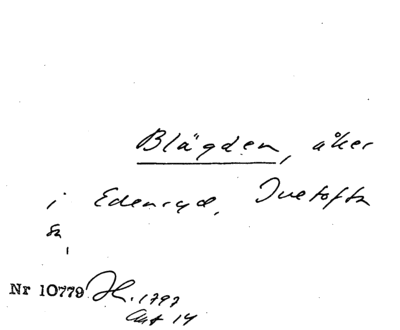 Blägden, åker
i Edenryd, Ivetofta
sn,
Nr 10779 Jh. 1797
Akt 14